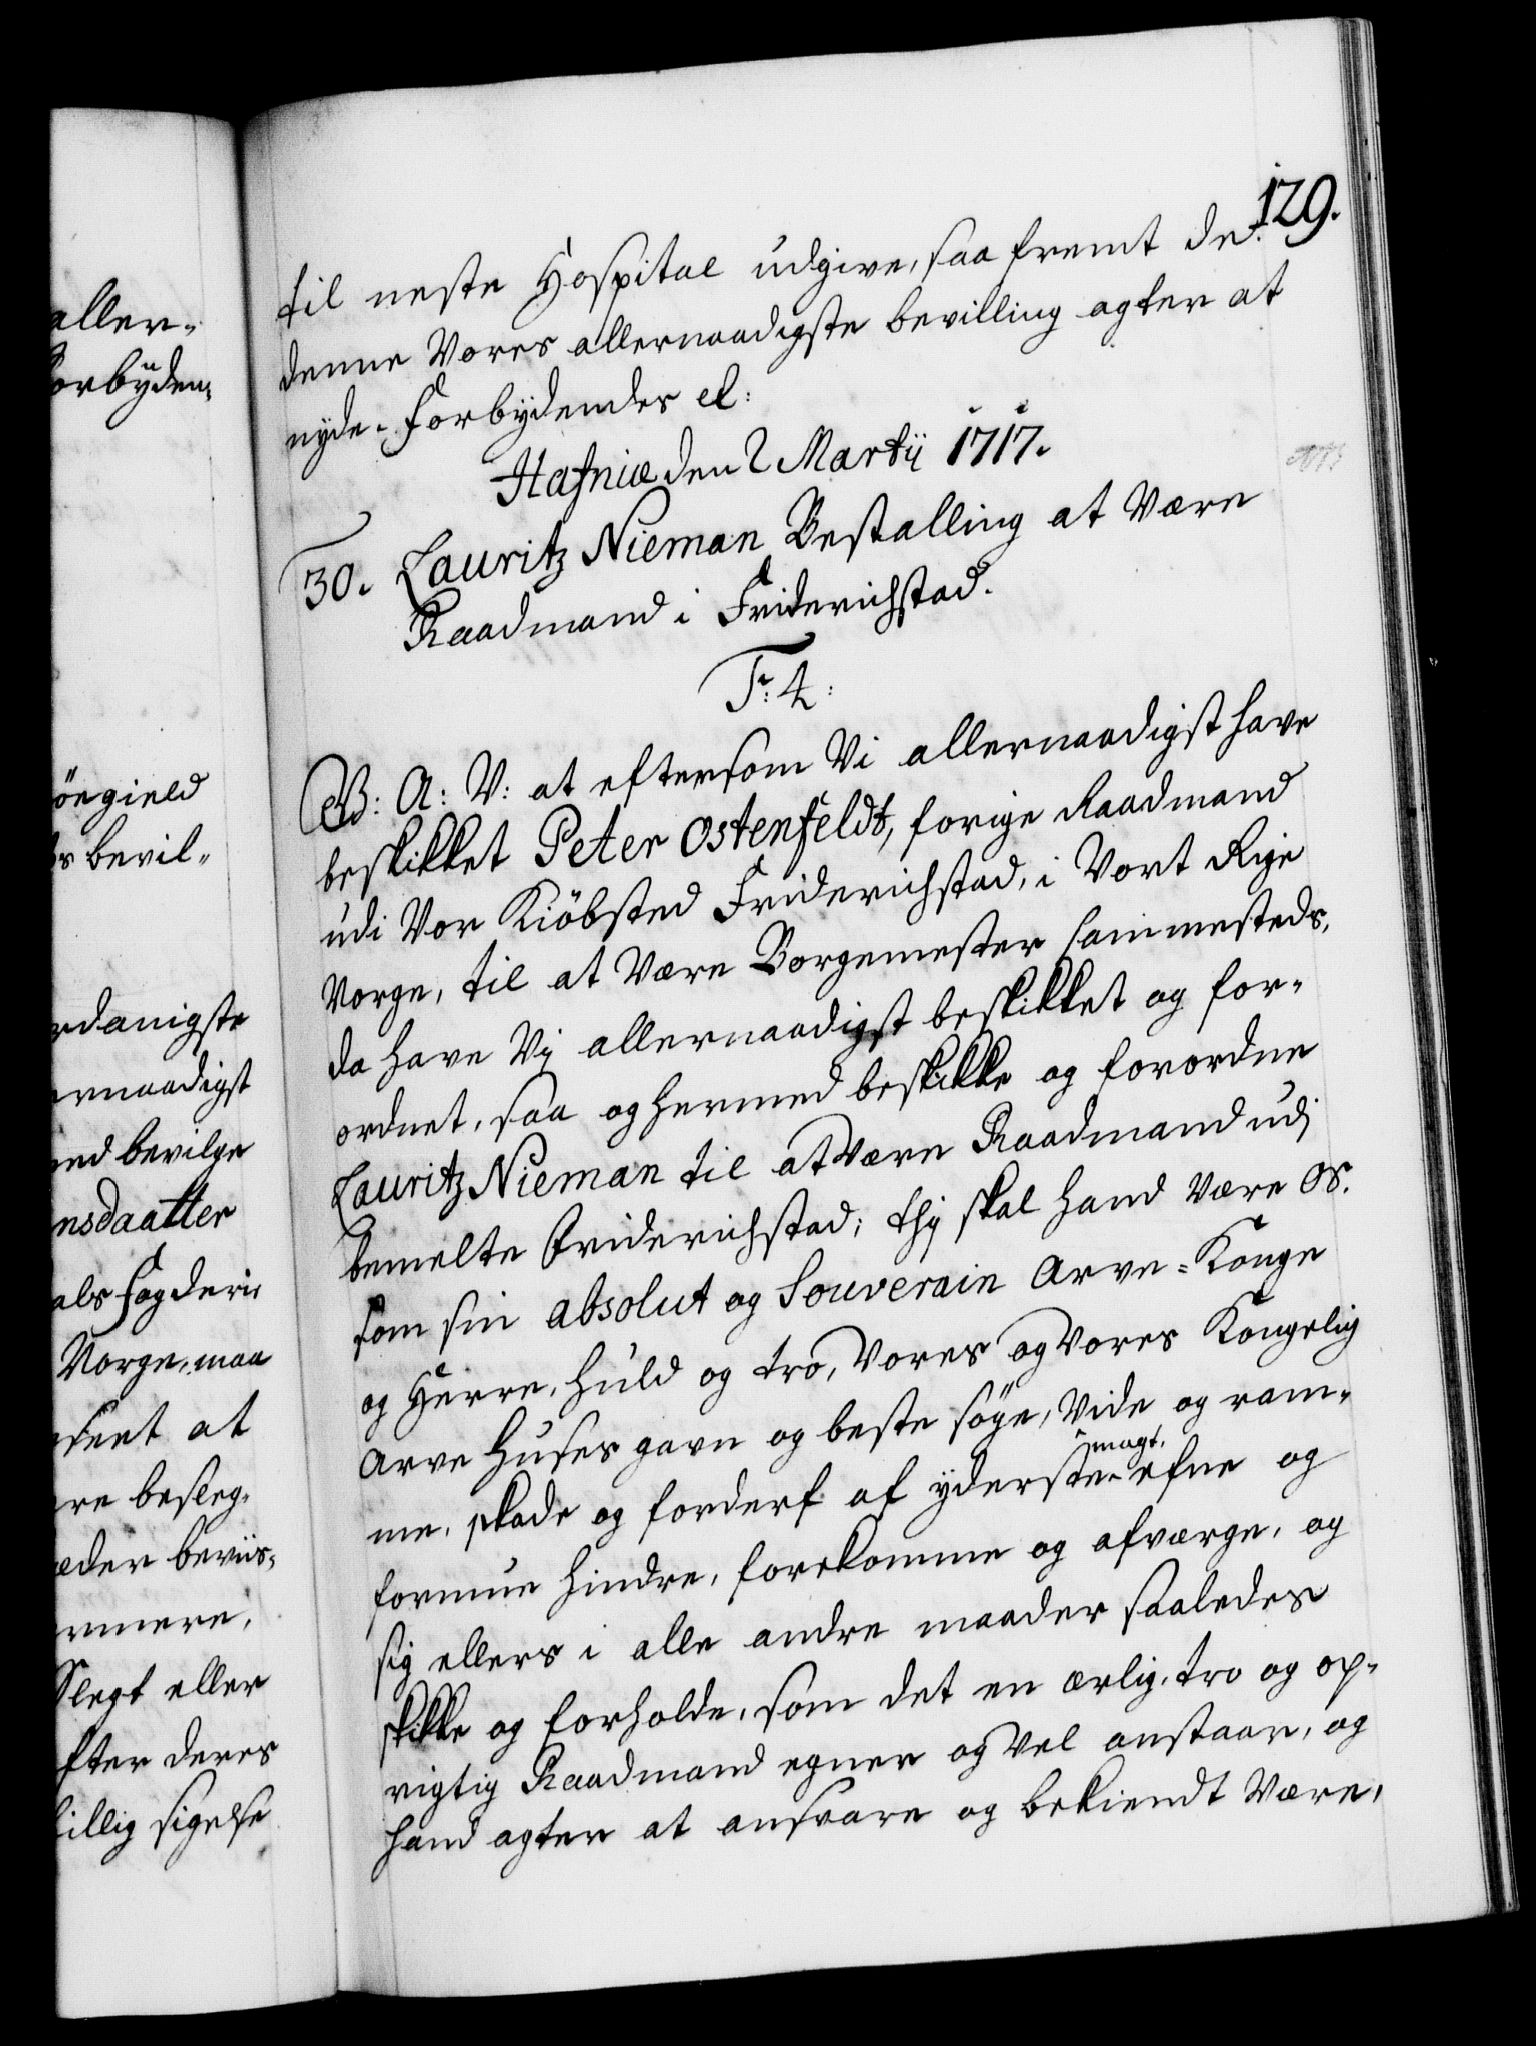 129.
til neste Hospital udgive, saa fremt de
denne Vores allernaadigste bevilling agter at
nyde. Forbydendes el:
Hafniæ den 2 Martij 1717.
30. Lauritz Nieman Bestalling at Være
Raadmand i Friderichstad.
Fr: 4:
G: A: V: at eftersom Vi allernaadigst have
beskikket Peter Ostenfeldt, forige Raadmand
udi Vor Kiöbsted Friderichstad, i Vort Rige
Norge, til at Være Borgemester sammesteds,
da have Vy allernaadigst beskikket og for-
ordnet, saa og hermed beskikke og forordne
Lauritz Nieman til at Være Raadmand udj
bemelte Friderichstad; thj skal hand Være Os.
som sin absolut og Souverain Arve-Konge
og Herre, huld og tro, Vores og Vores Kongelig
Arve Huses gavn og beste söge, Vide og ram-
me, skade og forderf af yderste magt, efne og
formue hindre, forekomme og afværge, og
sig ellers i alle andre maader saaledes
skikke og forholde, som det en ærlig, tro og op-
rigtig Raadmand egner og Vel anstaar, og
hand agter at ansvare og bekiendt Være,
aller-
orbyden-
öegield
bevil-
rdanigste
ernaadigst
ed bevilge
nsdaatter
als fogderie
Norge, maa
at
re besleg-
æder beviis-
Slegt eller
fter deres
illig sigelse